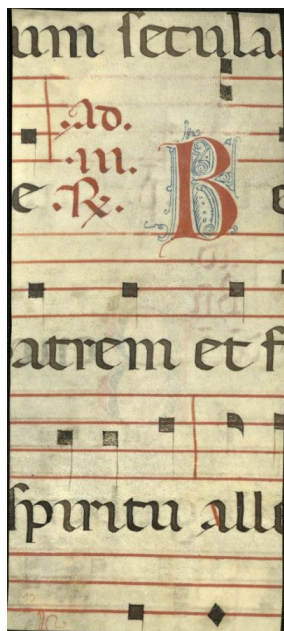 um secula.
.Ad.
.III.
e .℟. B e
atrem et f
spiritu alle